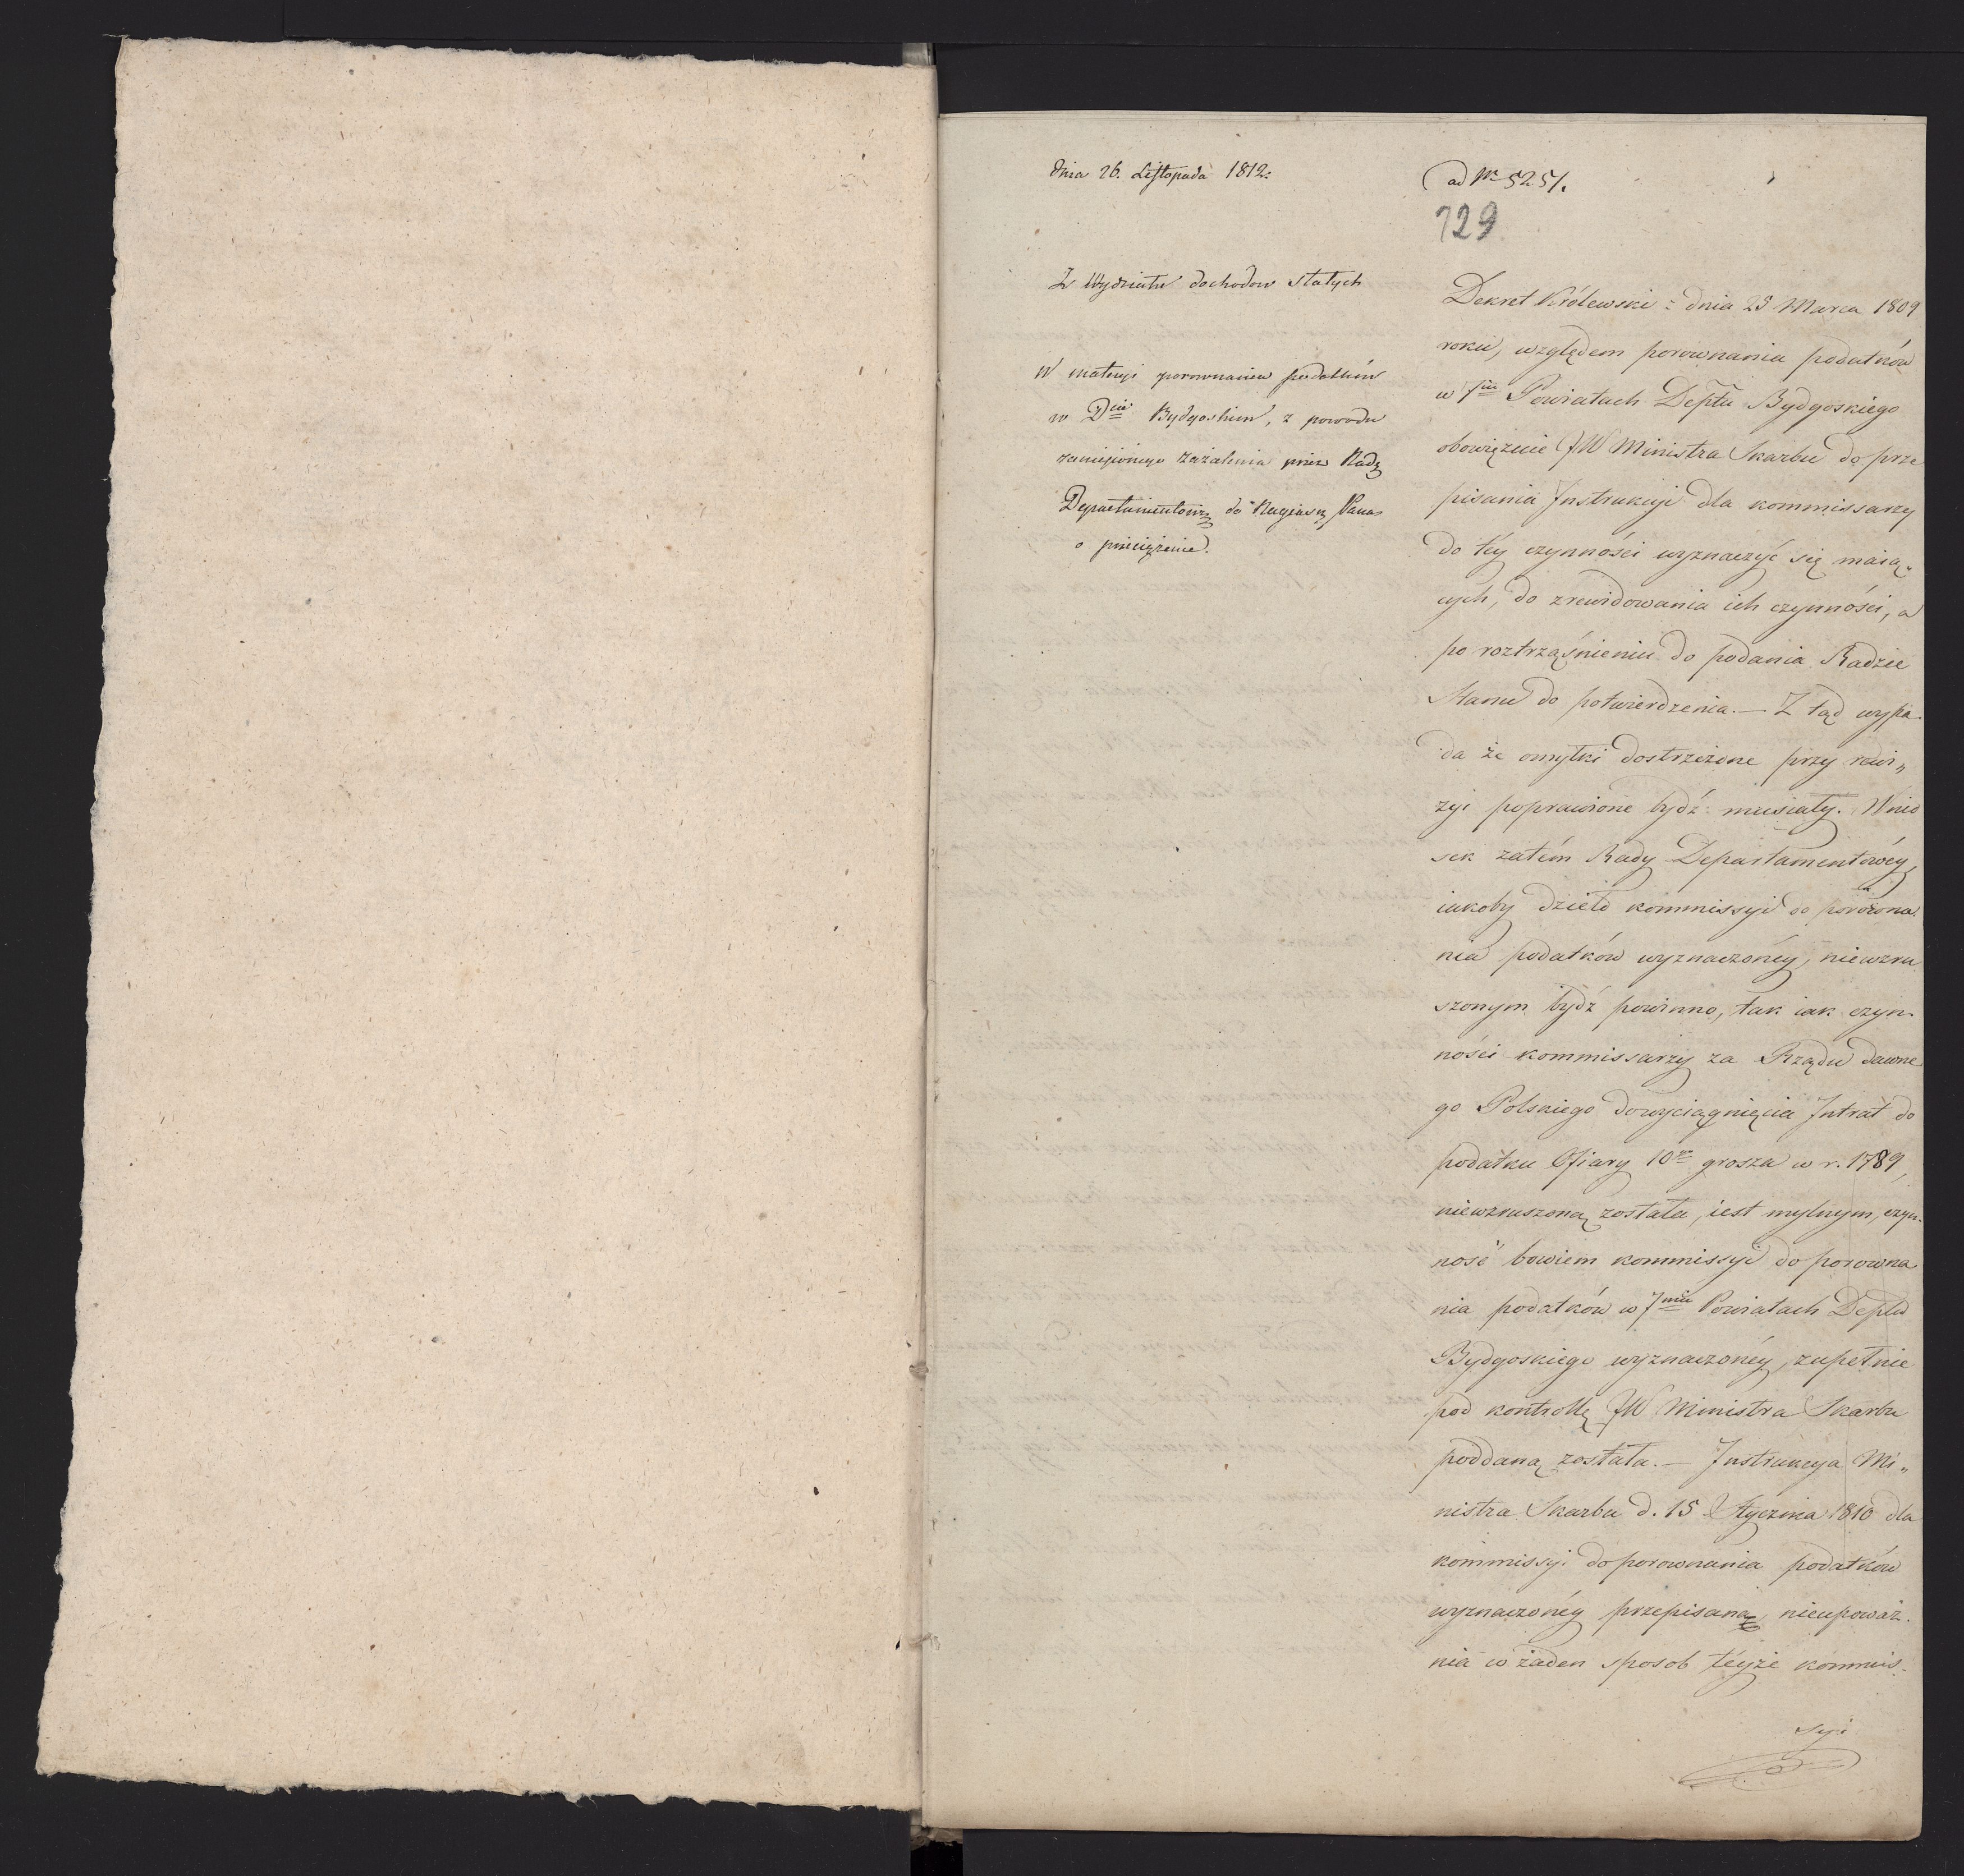 dnia 26. Listopada 1812.
ad Nr 5251.
729
Z Wydziału dochodow stałych
W materyi porownania podatków
w Dcie Bydgoskim, z powodu
zaniesionego zażalenia przez Radę
Departamentową do Nayiaś. Pana
o przeciążenie.
Dekret Królewski dnia 25 Marca 1809
roku, względem porownania podatków
w 7miu Powiatach Deptu Bydgoskiego
obowiązuie JW Ministra Skarbu do prze
pisania Instrukcyi dla kommissarzy
do téy czynności wyznaczyć się maią„
cych, do zrewidowania ich czynności, a
po roztrząśnieniu do podania Radzie
Stanu do potwierdzenia. — Z tąd wypa
da że omyłki dostrzeżone przy rewi„
zyi poprawione bydź musiały. Wnio
sek zatém Rady Departamentowéy,
iakoby dzieło kommissyi do porowna
nia podatków wyznaczonéy, niewzru
szonym bydź powinno, tak iak czyn
ności kommissarzy za Rządu dawne
go Polskiego dowyciągnięcia Intrat do
podatku Ofiary 10go grosza w r. 1789,
niewzruszoną została, iest mylnym, czyn
ność bowiem kommissyi do porowna
nia podatków w 7miu Powiatach Deptu
Bydgoskiego wyznaczonéy, zupełnie
pod kontrollę JW Ministra Skarbu
poddaną została. — Instrukcya Mi„
nistra Skarbu d. 15 Stycznia 1810 dla
kommissyi do porownania podatków
wyznaczonéy przepisana, nieupoważ
nia w żaden sposob téyże kommis
syi